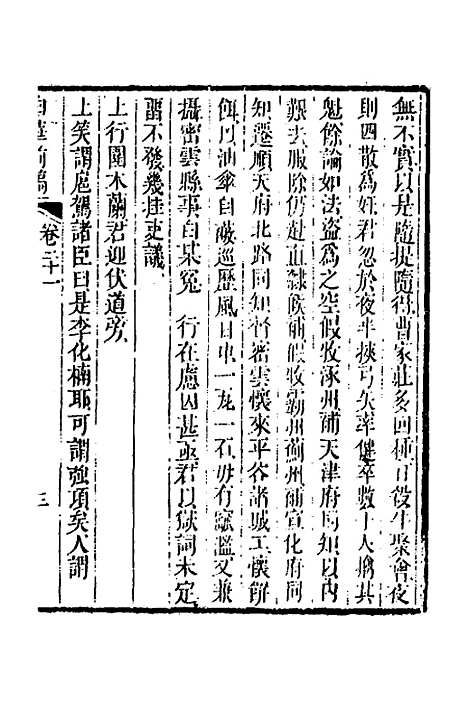 無不實以是隨捉隨得曹家莊多回種百餘牛聚會夜
則四散為奸君忽於夜半挾弓矢率健卒數十人擒其
魁餘論如法盜為之空假牧涿州補天津府同知以內
艱去服除仍赴直隸候補假牧霸州薊州補宣化府同
知遷順天府北路同知督密雲懷來平谷諸城工懷餅
餌以油傘自蔽巡歷風日中一灰一石毋有竄濫又兼
攝密雲縣事自某冤 行在慮囚甚亟君以獄詞未定
留不發幾挂吏議
上行圍木蘭君迎伏道旁
上笑謂扈駕諸臣曰是李化楠耶可謂強項矣人謂
白華前稿 卷二十一 三